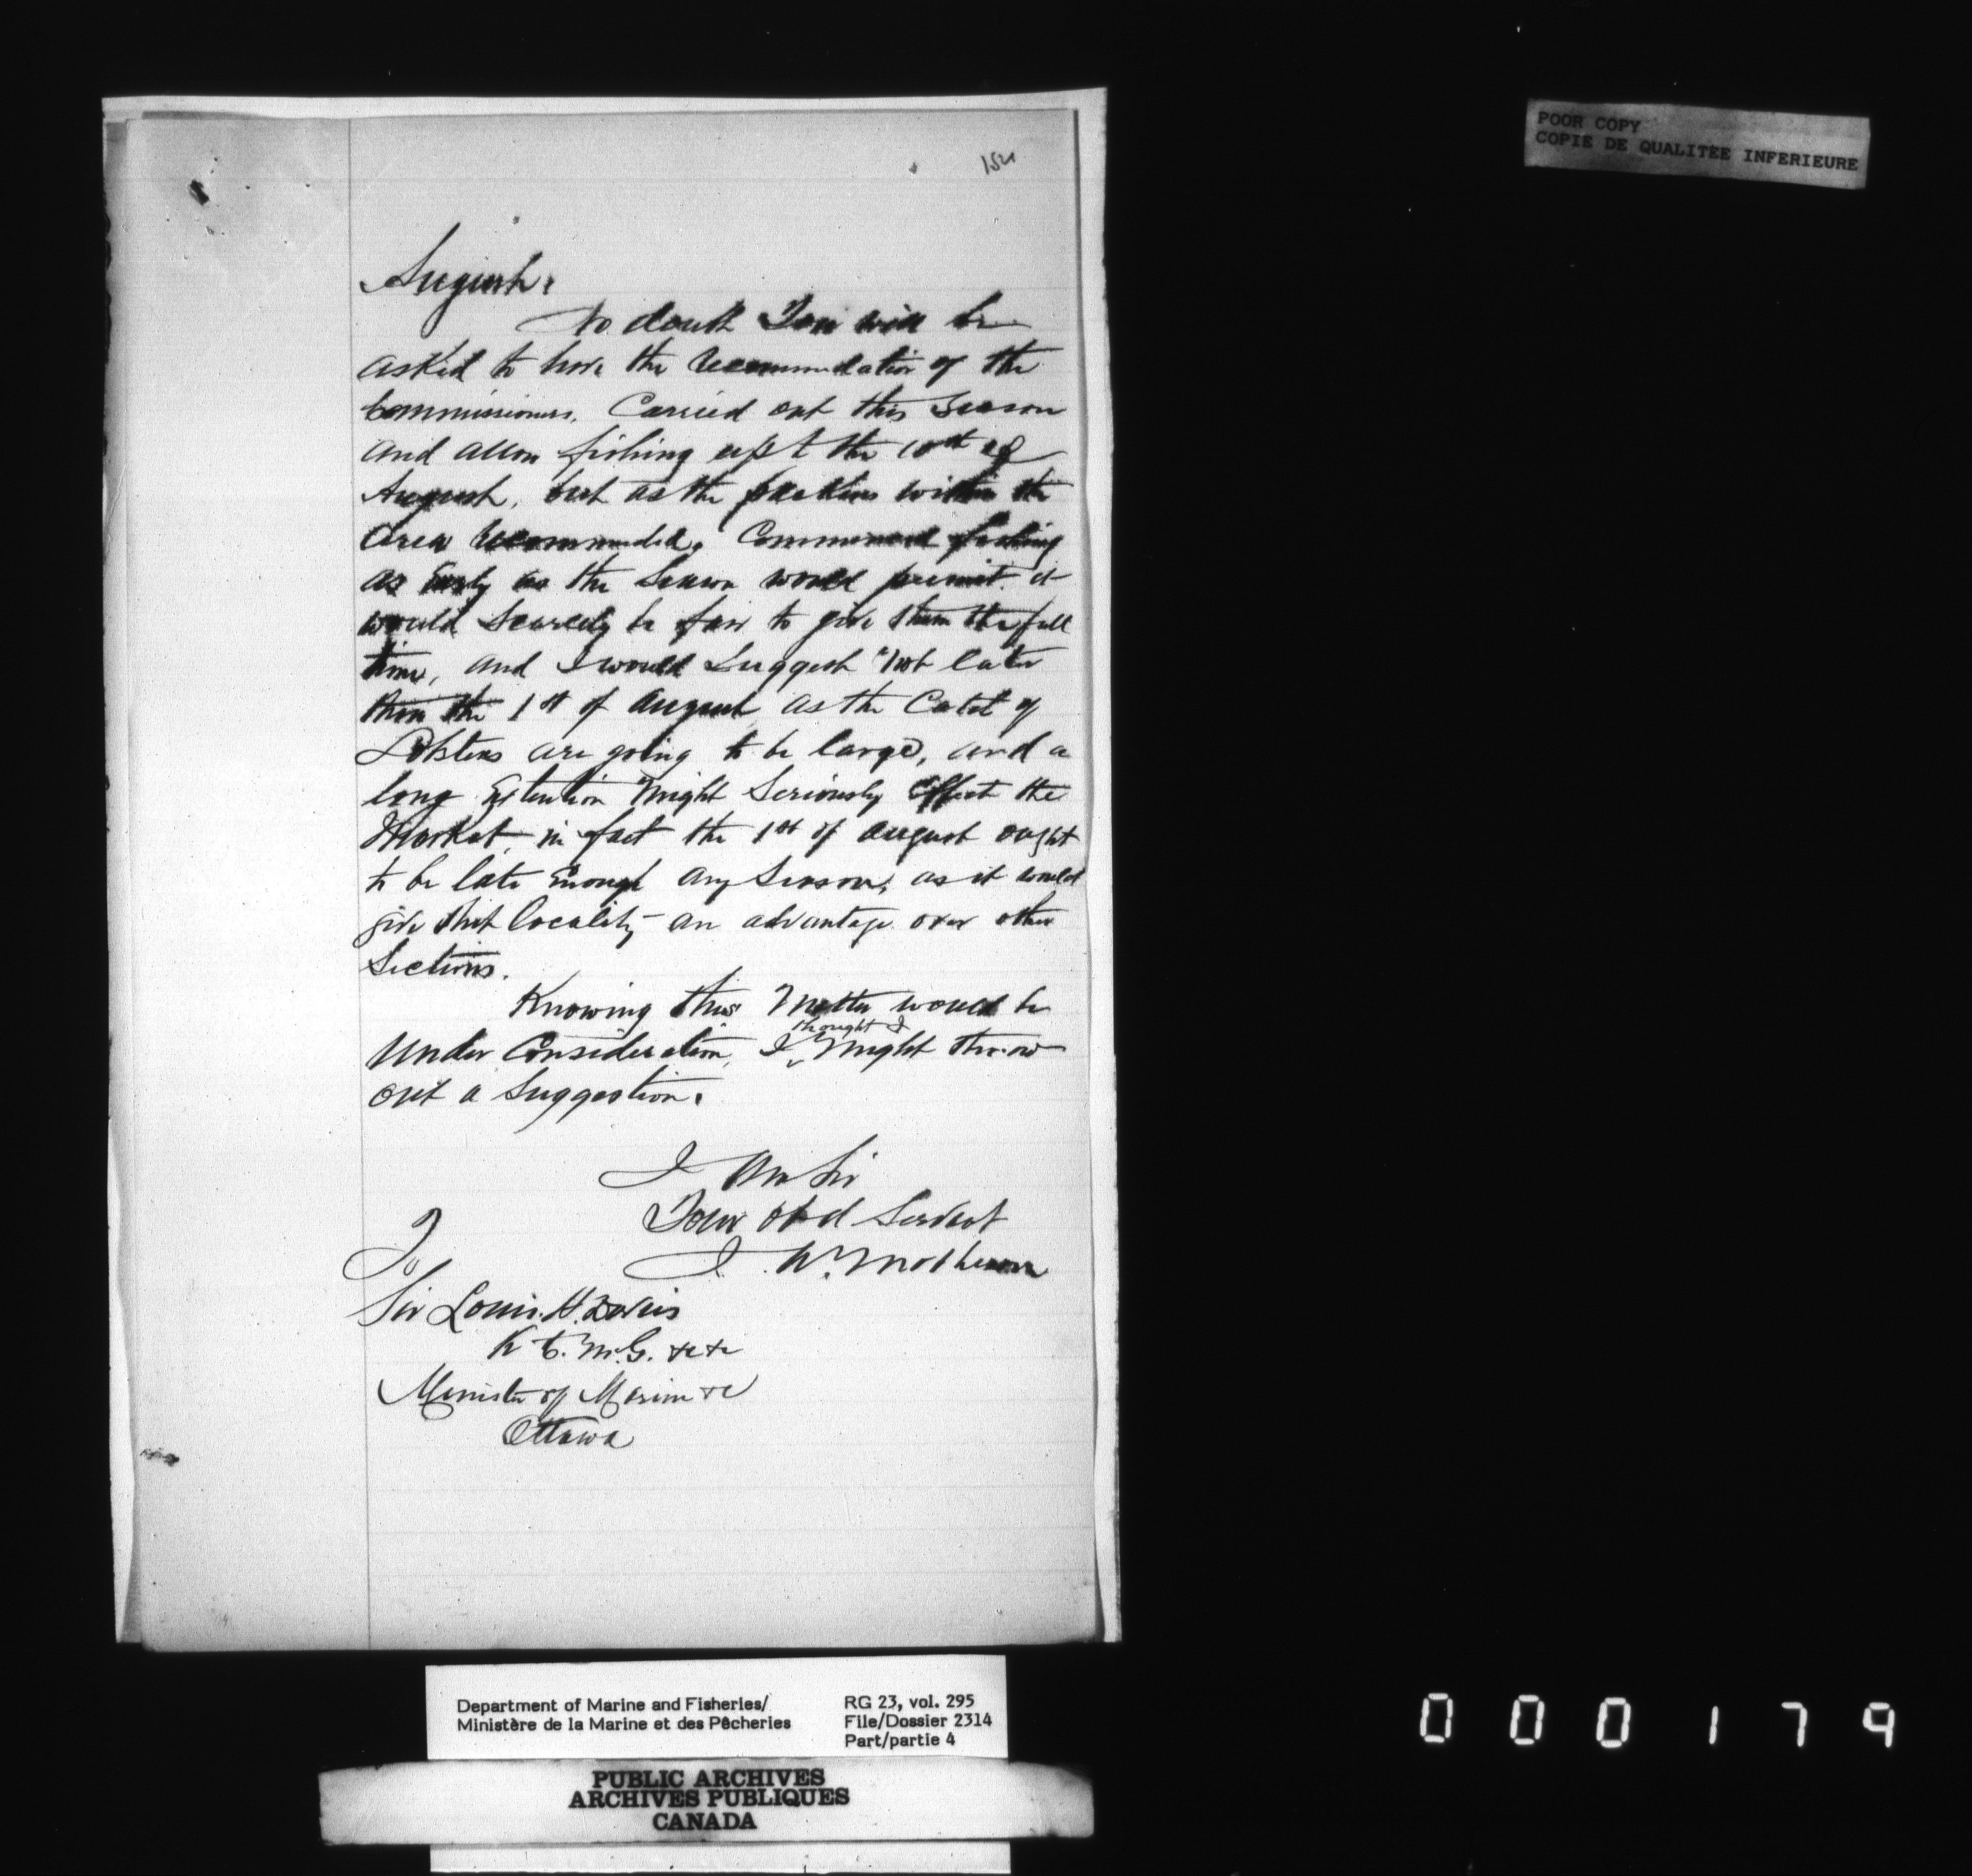 154
August.
No doubt You will be
asked to have the Recommendation of the
Commissioners. Carried out this Season
and allow fishing up to the 10th of
August, but as the packers within the
area Recommended, Commenced fishing
as Early as the Season would permit it
would Scarcely be fair to give them the full
time, and I would Suggest "not later
than the 1st of August as the Catch of
Lobsters are going to be large, and a
long Extention Might Seriously Effect the
Market, in fact the 1st of August ought
to be late Enough any Season, as it would
give that locality an advantage over other
Sections.
Knowing this Matter would be
thought I
Under Consideration, I Might throw
out a Suggestion.
I Am Sir
Your Obd Servant
To
Sir Louis. H. Davies
K C. M. G. &c &c
Minister of Marine &c
Ottawa
POOR COPY
COPIE DE QUALITEE INFERIEURE
Department of Marine and Fisheries/
Ministère de la Marine et des Pêcheries
RG 23, vol. 295
File/Dossier 2314
Part/partie 4
PUBLIC ARCHIVES
ARCHIVES PUBLIQUES
CANADA
000179